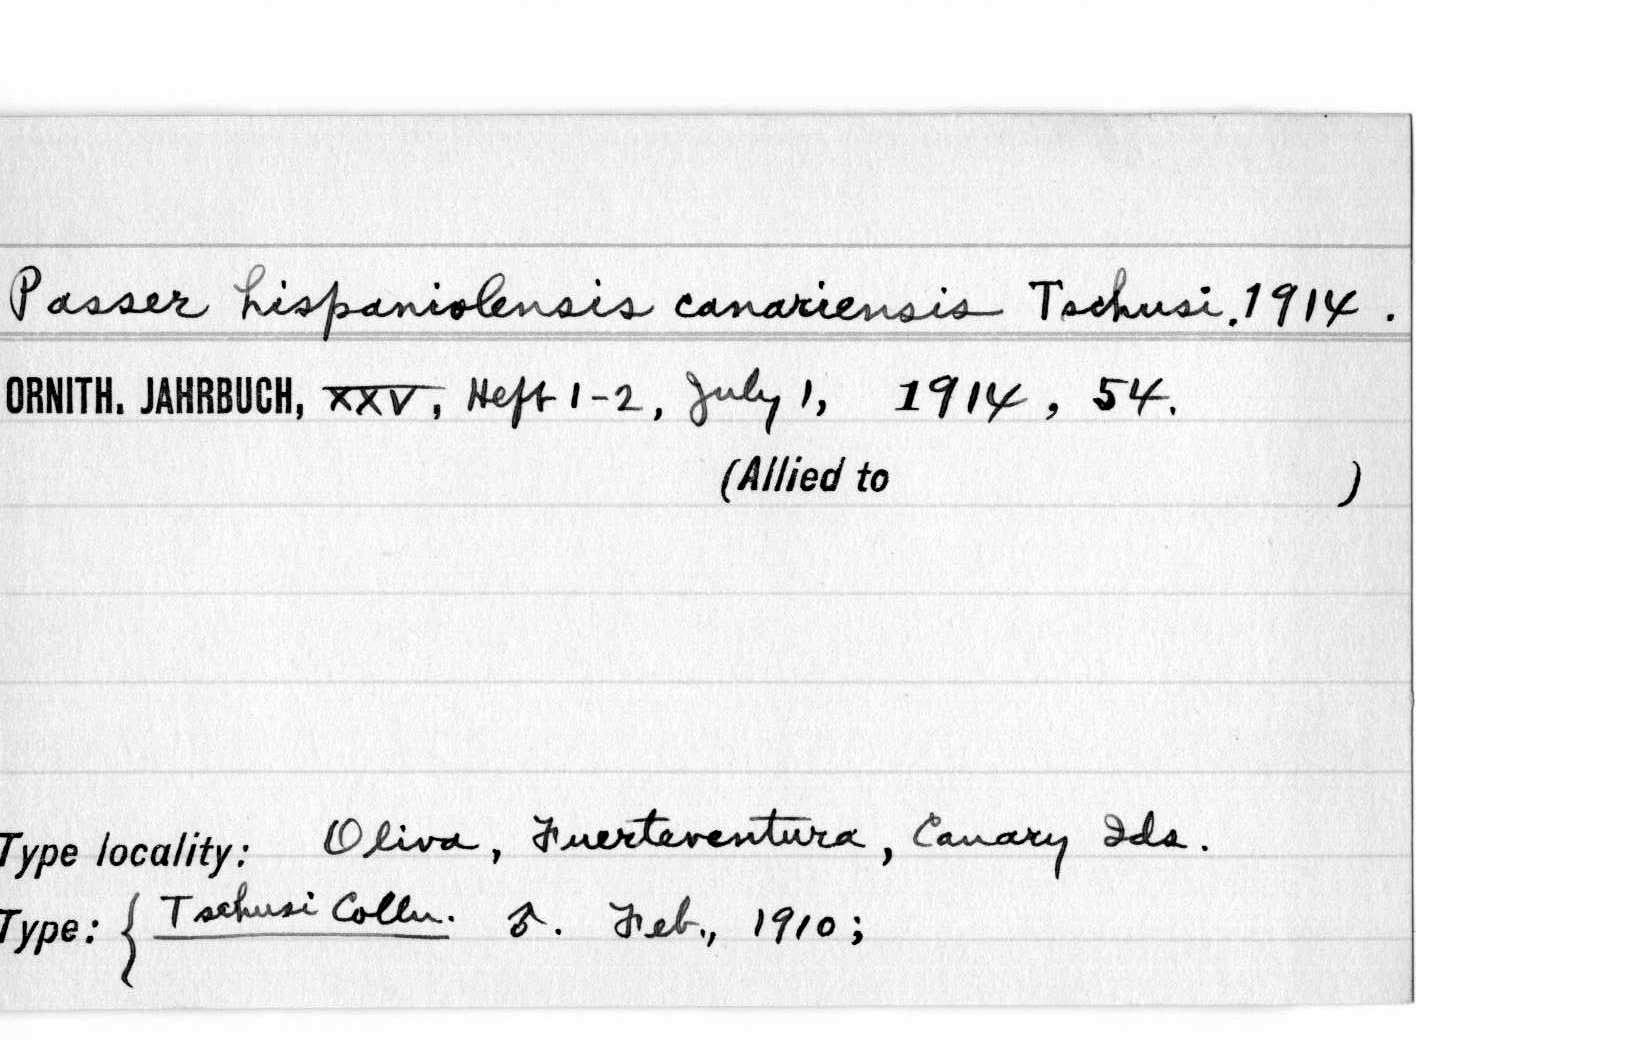 Passer hispaniolensis canariensis Tschusi, 1914.
ORNITH. JAHRBUCH, XXV, Heft 1-2, July 1, 1914, 54.
(Allied to )
Type locality: Oliva, Fuerteventura, Canary Ids.
Type: { Tschusi Colln. ♂. Feb., 1910;